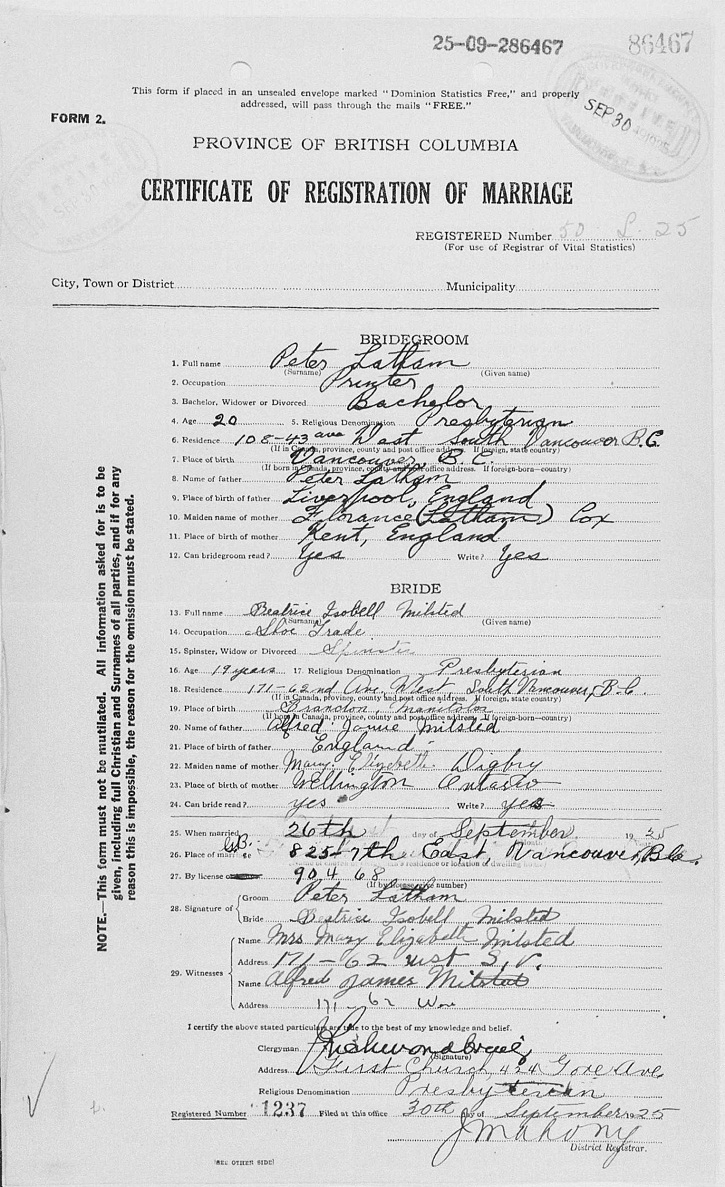 25-09-286467
86467
This form if placed in an unsealed envelope marked "Dominion Statistics Free," and properly
addressed, will pass through the mails "FREE."
SEP 30
FORM 2.
PROVINCE OF BRITISH COLUMBIA
CERTIFICATE OF REGISTRATION OF MARRIAGE
REGISTERED Number 50 L. 25
(For use of Registrar of Vital Statistics)
City, Town or District
Municipality
NOTE.—This form must not be mutilated. All information asked for is to be
given, including full Christian and Surnames of all parties, and if for any
reason this is impossible, the reason for the omission must be stated.
BRIDEGROOM
1. Full name Peter Latham
(Surname) (Given name)
2. Occupation Printer
3. Bachelor, Widower or Divorced Bachelor
4. Age 20 5. Religious Denomination Presbyterian
6. Residence 108-43 ave West South Vancouver B.C.
(If in Canada, province, county and post office address. If foreign, state country)
7. Place of birth Vancouver, B.C.
(If born in Canada, province, county and post office address. If foreign-born—country)
8. Name of father Peter Latham
9. Place of birth of father Liverpool, England
10. Maiden name of mother Florance (Latham) Cox
11. Place of birth of mother Kent, England
12. Can bridegroom read? Yes Write? Yes
BRIDE
13. Full name Beatrice Isobell Milsted
(Surname) (Given name)
14. Occupation Shoe Trade
15. Spinster, Widow or Divorced Spinster
16. Age 19 years 17. Religious Denomination Presbyterian
18. Residence 171-62nd Ave. West, South Vancouver, B.C.
(If in Canada, province, county and post office address. If foreign, state country)
19. Place of birth Brandon, Manitoba
(If born in Canada, province, county and post office address. If foreign-born—country)
20. Name of father Alfred Jamie Milsted
21. Place of birth of father England
22. Maiden name of mother Mary Elizabeth Digby
23. Place of birth of mother Wellington Ontario
24. Can bride read? yes Write? yes
25. When married 26th day of September 1925
26. Place of marriage 825-7th East, Vancouver, B.C.
27. By license 90468
(If by license give number)
28. Signature of Groom Peter Latham
Bride Beatrice Isobell Milsted
29. Witnesses Name Mrs Mary Elizabeth Milsted
Address 171-62 west S.V.
Name Alfred James Milsted
Address 171-62 Wes
I certify the above stated particulars are true to the best of my knowledge and belief.
Clergyman
(Signature)
Address First Church 434 Gore Ave
Religious Denomination Presbyterian
Registered Number 1237 Filed at this office 30th day of September 1925
J Mahony
District Registrar.
(SEE OTHER SIDE)